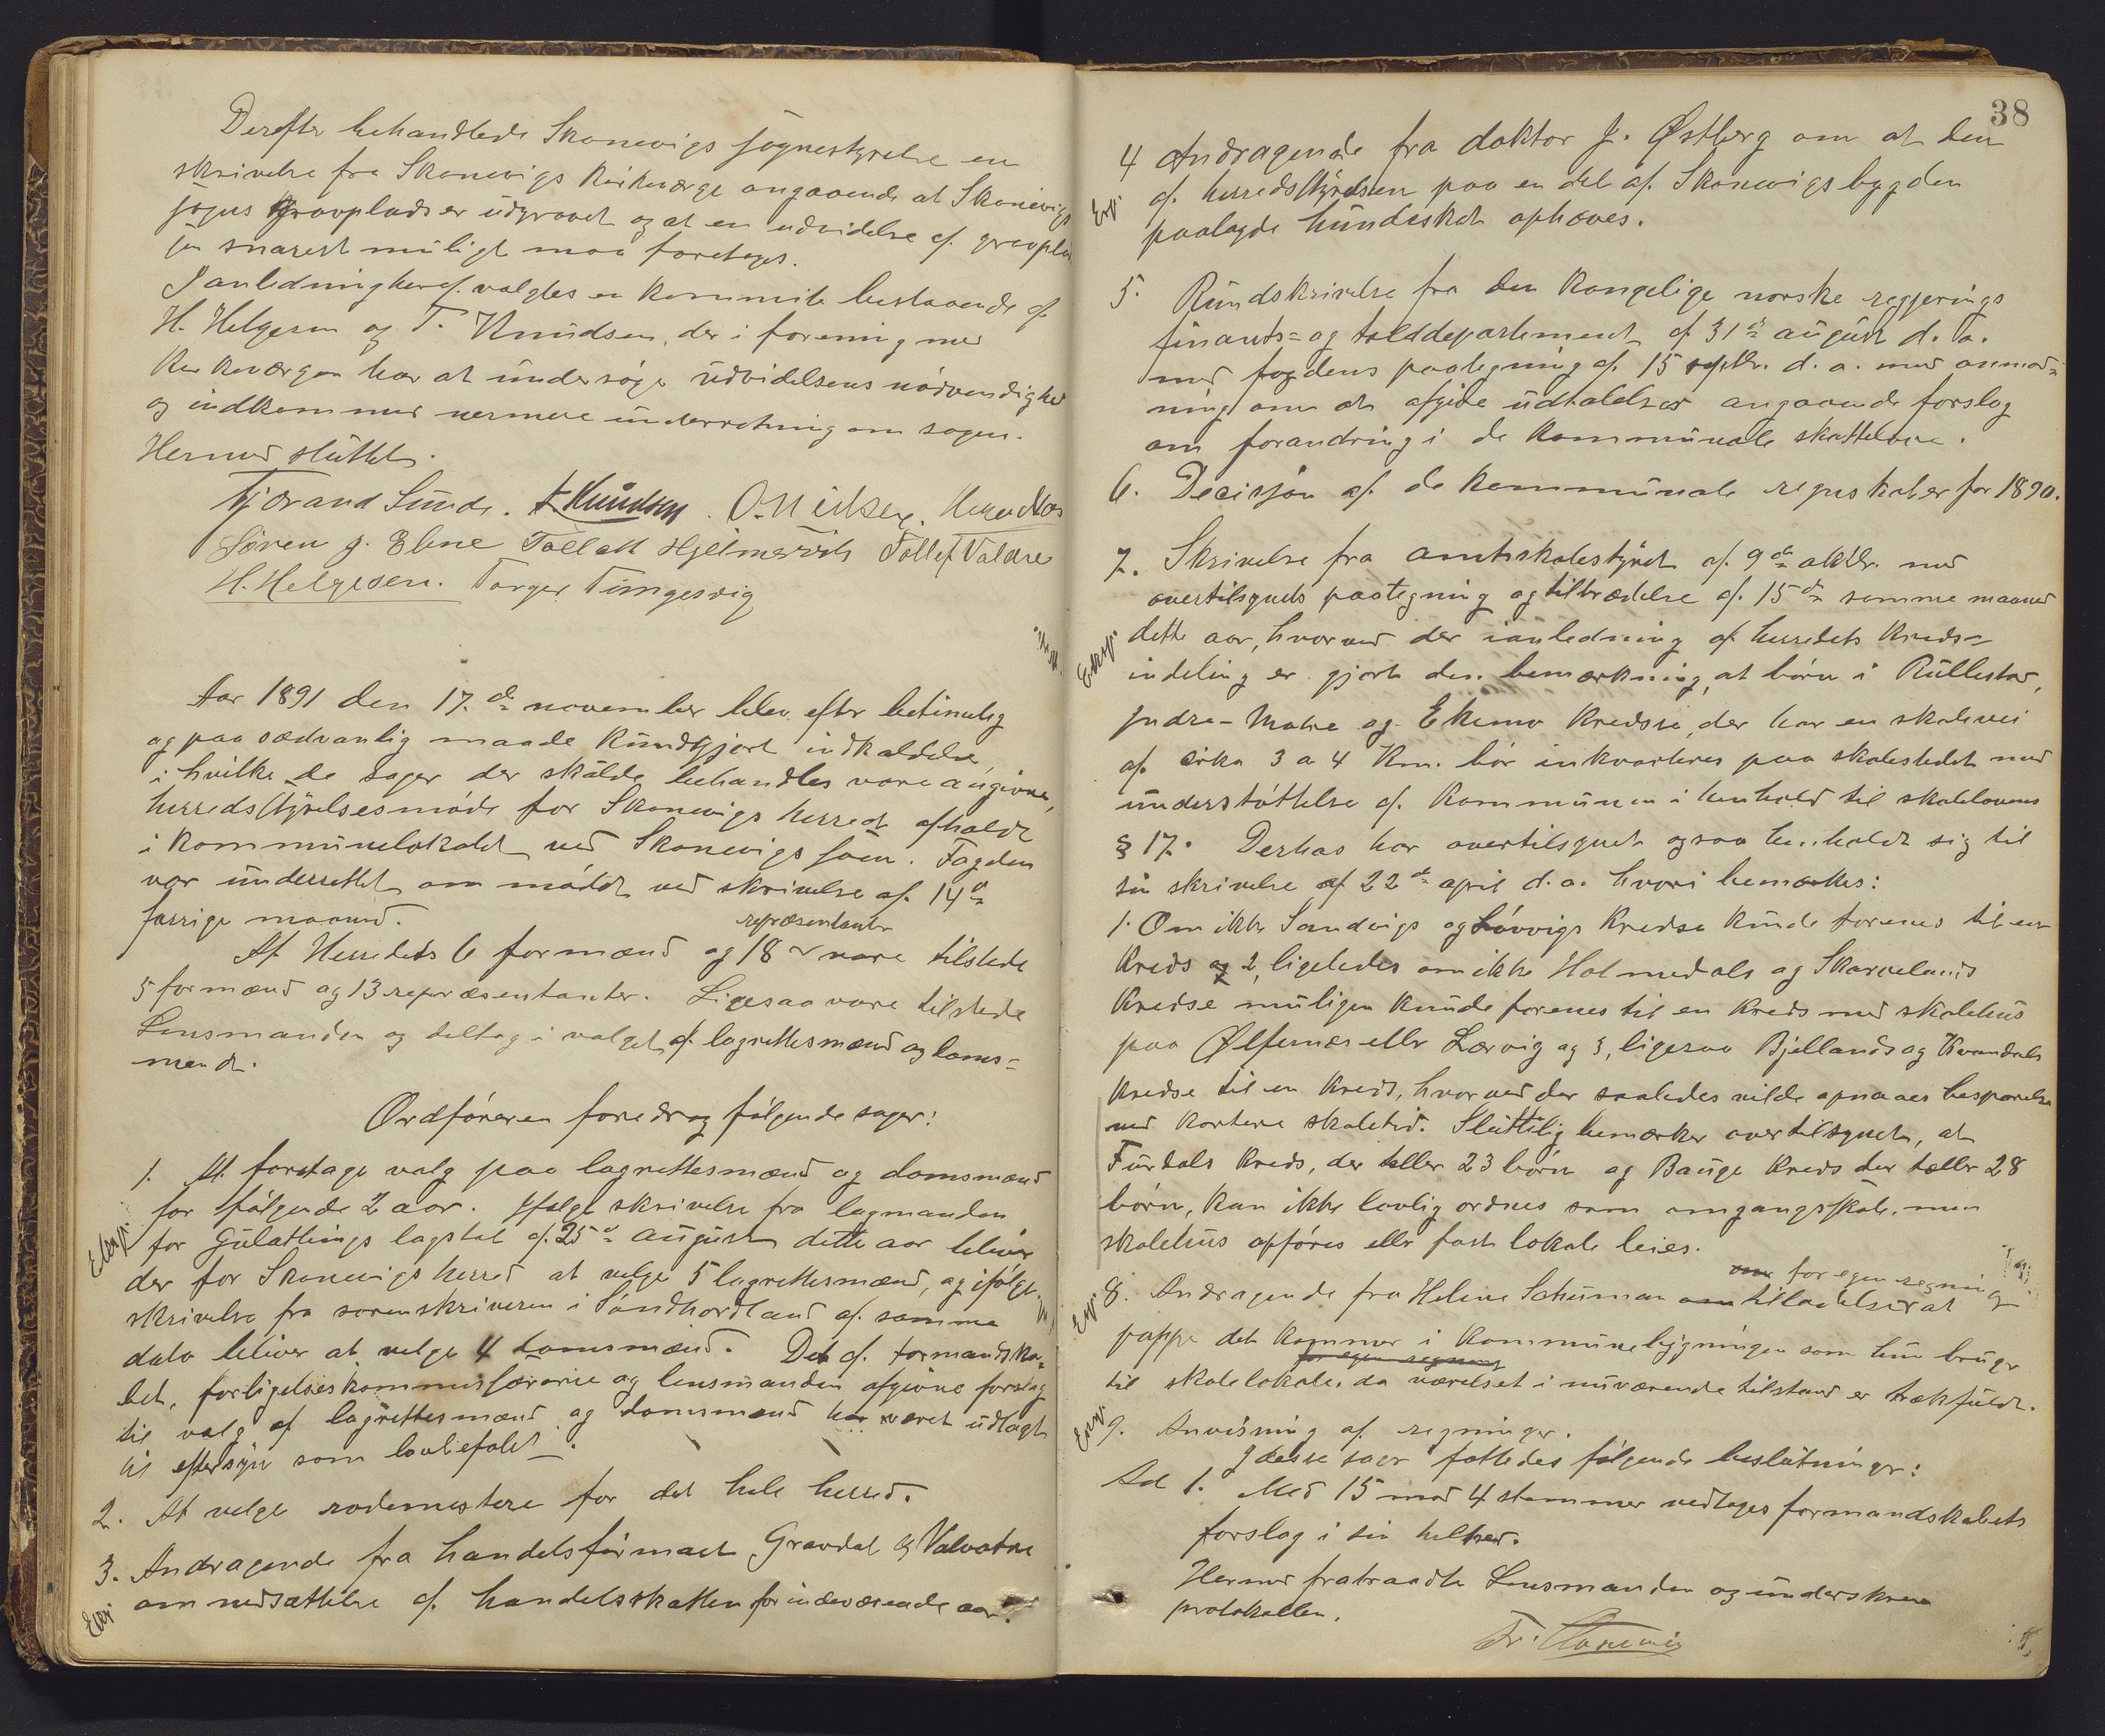 Derefter behandlede Skonevigs sognestyrelse en
skrivelse fra Skonevigs Kirkeværge angaaende at Skonevigs
sogns gravplads er udgravet og at en udvidelse af gravplad
sen snarest muligt maa foretages.
I anledning heraf valgtes en kommite bestaaende af
H. Helgesen og T. Knudsen, der i forening med
Kirkeværgen har at undersøge udvidelsens nødvendighed
og indkommer nermere underretning om sagen.
Hermed sluttet.
Tjærand Sunde. T Knudsen. O. Milsen.
Søren J. Ebne Tollak Hjelmervik Tollef Valdre
H. Helgesen. Torger Tungesvig
Aar 1891 den 17.de november blev efter betimelig
og paa sædvanlig maade kundgjort indkaldelse,
i hvilke de sager der skulde behandles vare angivne,
herredsstyrelsesmøde for Skonevigs herred afholdt
i kommunelokalet ved Skonevigs søen. Fogden
var underrettet om mødet ved skrivelse af 14de
forrige maaned.
repræsentanter
Af Herredets 6 formænd og 18 vare tilstede
5 formænd og 13 repræsentanter. Ligesaa vare tilstede
Lensmanden og deltog i valget af lagrettesmænd og doms=
mænd.
Ordføreren foredrog følgende sager:
1. At foretage valg paa lagrettesmænd og domsmænd
for følgende 2 aar. Ifølge skrivelse fra lagmanden
Exp.
for Gulathings lagstol af 25de august dette aar bliver
der for Skonevigs herred at velge 5 lagrettesmænd, og ifølge
skrivelse fra sorenskriveren i Søndhordland af samme
dato bliver at velge 4 domsmænd. Det af formandska=
bet, forligelseskommissærerne og lensmanden afgivne forslag
til valg af lagrettesmænd og domsmænd har været udlagt
til eftersyn som lovbefalet.
2. At velge rodemestere for det hele herred.
3. Andragende fra handelsfirmaet Gravdal & Valvatne
Exp.
om nedsættelse af handelsskatten for indeværende aar.
38
4 Andragende fra doktor J. Østberg om at den
Exp.
af herredsstyrelsen paa en del af Skonevigsbygden
paalagde hundeskat ophæves.
5. Rundskrivelse fra den Kongelige norske regjerings
finants= og tolddepartement af 31te august d. a.
med fogdens paategning af 15 septbr. d. a. med anmod=
ning om at afgive udtalelser angaaende forslag
om forandring i de kommunale skattelove.
6. Decisjon af de kommunale regnskaber for 1890.
7. Skrivelse fra amtsskolestyret af 9de oktbr. med
overtilsynets paategning og tiltrædelse af 15de samme maaned
Exsp.
dette aar, hvorved der i anledning af herredets kreds=
indeling er gjort den bemærkning, at børn i Rullestad,
Indre-Matre og Ekemo Kredse, der har en skolevei
af cirka 3 a 4 Km. bør inkvarteres paa skolestedet med
understøttelse af kommunen i henhold til skolelovens
§ 17. Derhos har overtilsynet ogsaa henholdt sig til
sin skrivelse af 22de april d. a. hvori bemærkes:
1. Om ikke Sandvigs og Løvvigs kredse kunde forenes til en
kreds og 2, ligeledes om ikke Holmedals og Skarvelands
kredse muligen kunde forenes til en kreds med skolehus
paa Ølfernæs eller Lærvig og 3, ligesaa Bjellands og Kvandals
kredse til en kreds, hvorved der saaledes vilde opnaaes besparelse
med kortere skoletid. Sluttelig bemærker overtilsynet, at
Furdals kreds, der teller 23 børn og Bauge kreds der tæller 28
børn, kan ikke lovlig ordnes som omgangsskole. men
skolehus opføres eller fast lokale leies.
om for egen regning
8. Andragende fra Helene Schuman om tilladelse at
Exp.
pappe det kammer i kommunebygningen som hun bruger
for egen regning
til skolelokale, da værelset i nuværende tilstand er trækfuldt.
9. Anvisning af regninger.
I disse sager fattedes følgende beslutninger:
Ad 1. Med 15 mod 4 stemmer vedtoges formandskabets
forslag i sin helhed.
Hermed fratraadte Lensmanden og underskrev
protokollen.